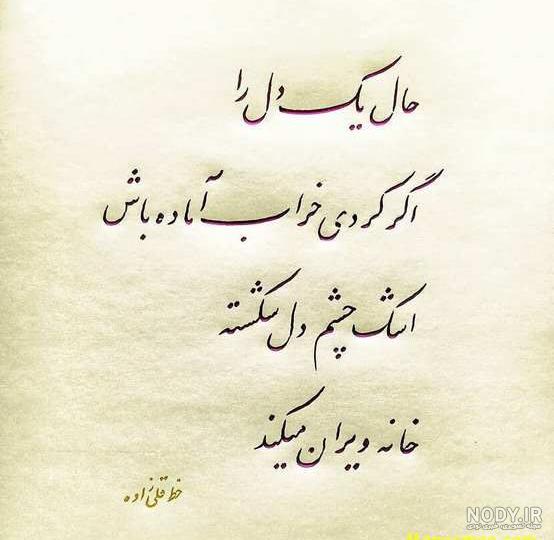 حال یک دل را
اگر کردی خراب آماده باش
اشک چشم دل شکسته
خانه ویران میکند
خط قلی زاده
NODY.IR